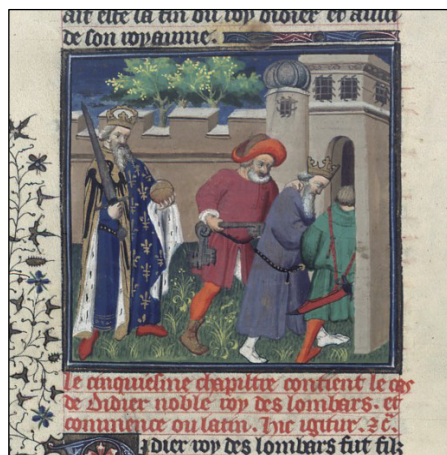 ait este la fin du roy didier et aussi
de son royaume.
Le cinquiesme chapiltre contient le cas
de Didier noble roy des lombars. et
commence ou latin. Hic igitur. ⁊c̃.
Didier roy des lombars fut filz